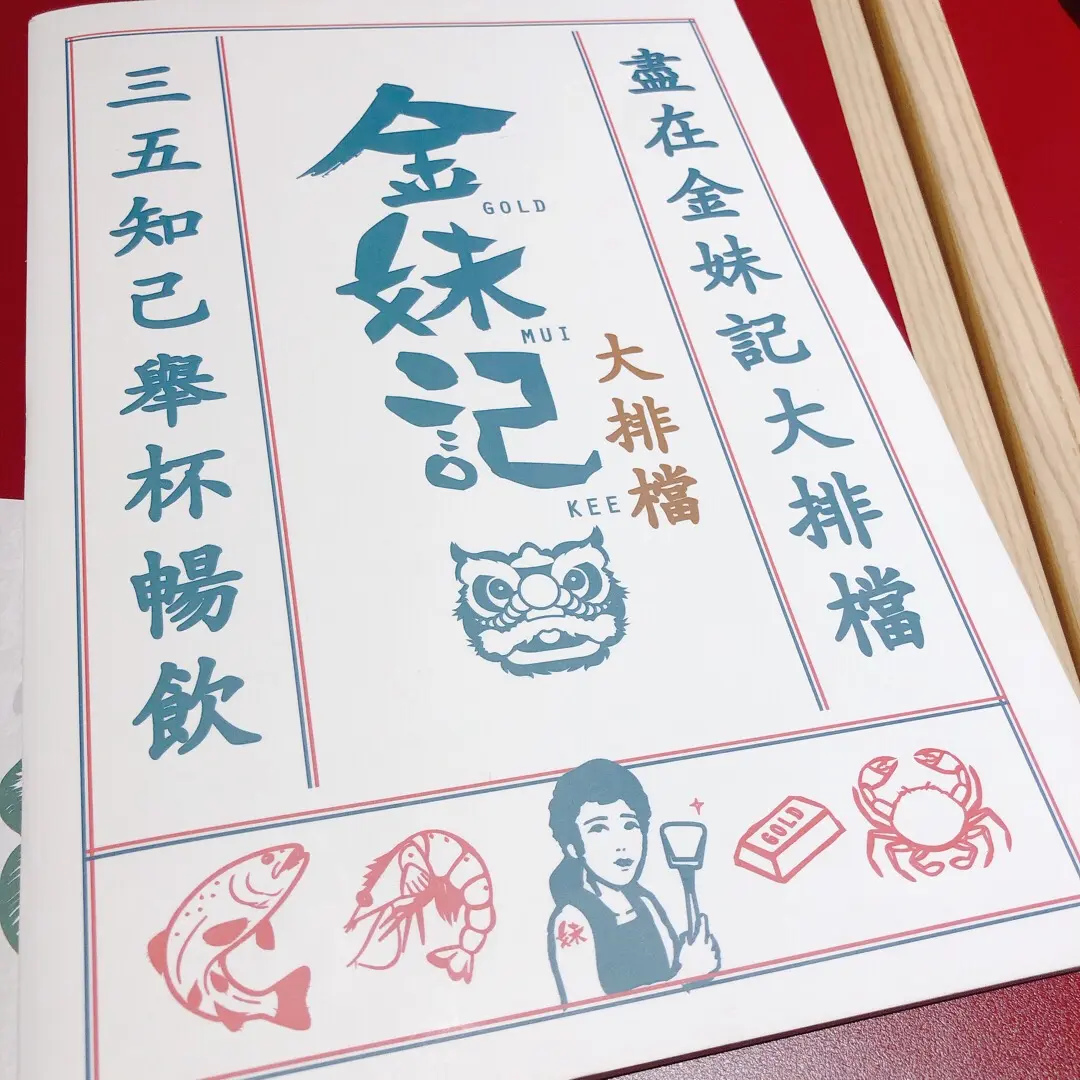 盡在金妹記大排檔
金妹記
GOLD
MUI
KEE
大排檔
三五知己舉杯暢飲
妹
GOLD